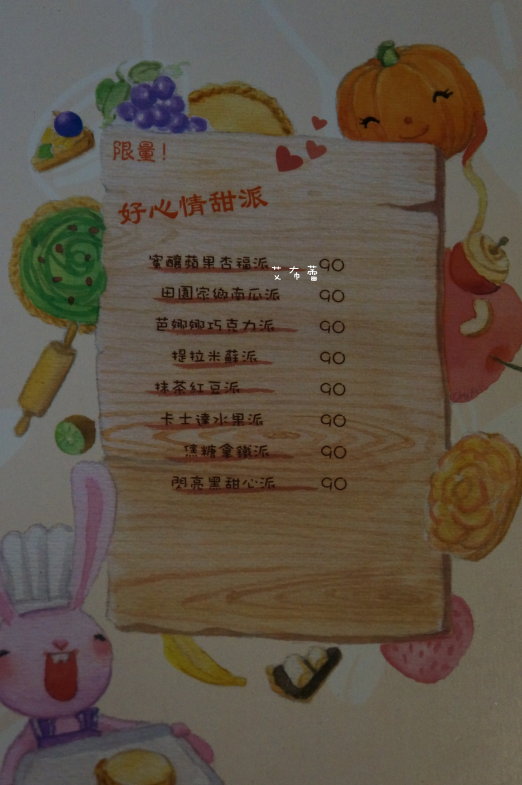 限量!
好心情甜派
蜜釀蘋果杏福派 90
艾布蕾
田園家鄉南瓜派 90
芭娜娜巧克力派 90
提拉米蘇派 90
抹茶紅豆派 90
卡士達水果派 90
焦糖拿鐵派 90
閃亮黑甜心派 90